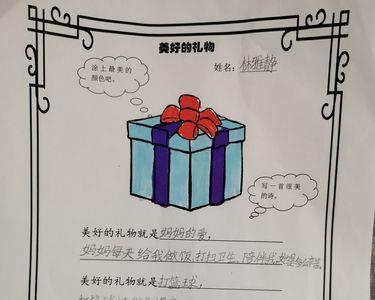 美好的礼物
姓名：林雅静
涂上最美的
颜色吧。
写一首很美
的诗。
美好的礼物就是妈妈的爱，
妈妈每天给我做饭，打扫卫生，陪伴我
美好的礼物就是打篮球，